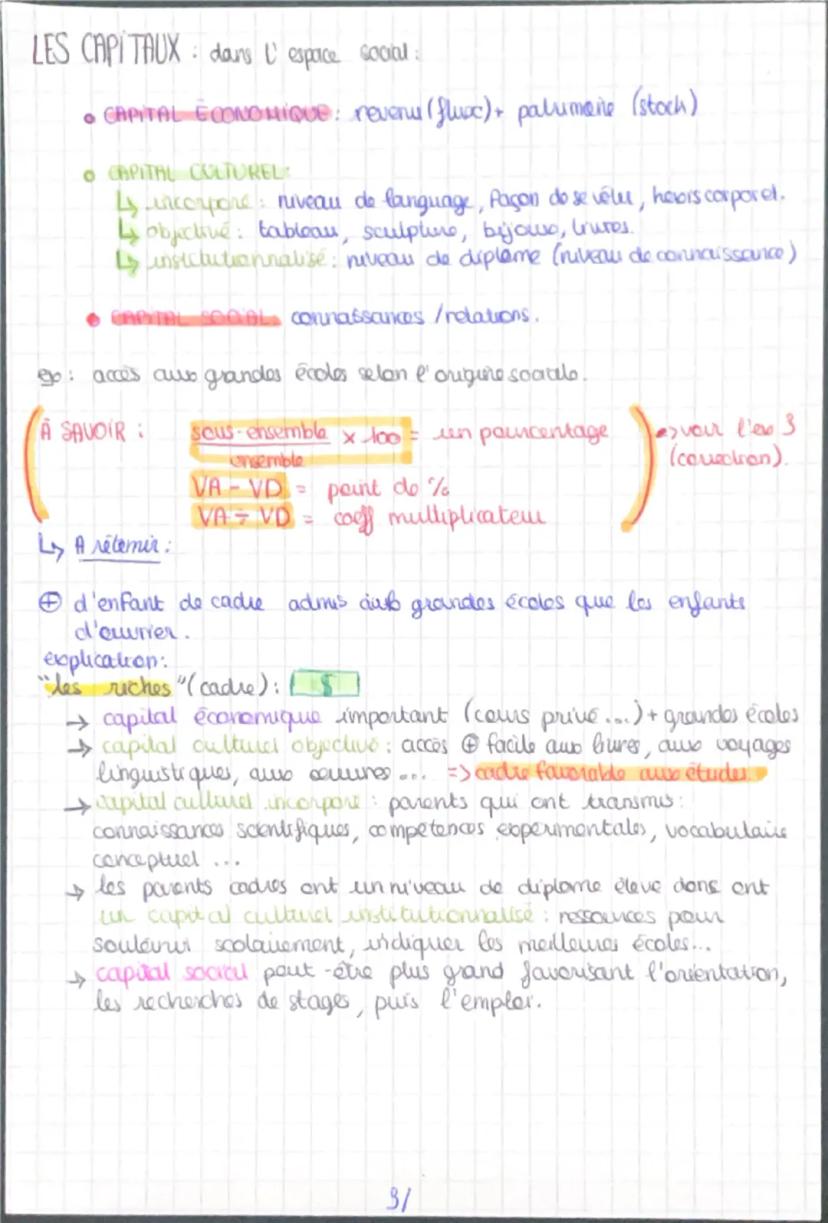 LES CAPITAUX : dans l'espace social :
• CAPITAL ÉCONOMIQUE : revenu (flux) + patrimoine (stock)
• CAPITAL CULTUREL :
↳ incorporé : niveau de language, façon de se vêtir, hexis corporel.
↳ objectivé : tableau, sculpture, bijoux, livres.
↳ institutionnalisé : niveau de diplôme (niveau de connaissance)
• CAPITAL SOCIAL : connaissances / relations.
ex : accès aux grandes écoles selon l'origine sociale.
À SAVOIR : sous-ensemble x 100 = un pourcentage => voir l'ex 3
ensemble (correction).
VA - VD = point de %
VA ÷ VD = coeff multiplicateur
↳ A retenir :
⊕ d'enfant de cadre admis aux grandes écoles que les enfants
d'ouvrier.
explication :
"les riches" (cadre) : $
→ capital économique important (cours privé ...) + grandes écoles
→ capital culturel objectivé : accès ⊕ facile aux livres, aux voyages
linguistiques, aux oeuvres ... => cadre favorable aux études.
→ capital culturel incorporé : parents qui ont transmis :
connaissances scientifiques, compétences expérimentales, vocabulaire
conceptuel ...
→ les parents cadres ont un niveau de diplome élevé donc ont
un capital culturel institutionnalisé : ressources pour
soutenir scolairement, indiquer les meilleures écoles...
→ capital social peut-être plus grand favorisant l'orientation,
les recherches de stages, puis l'emploi.
3/